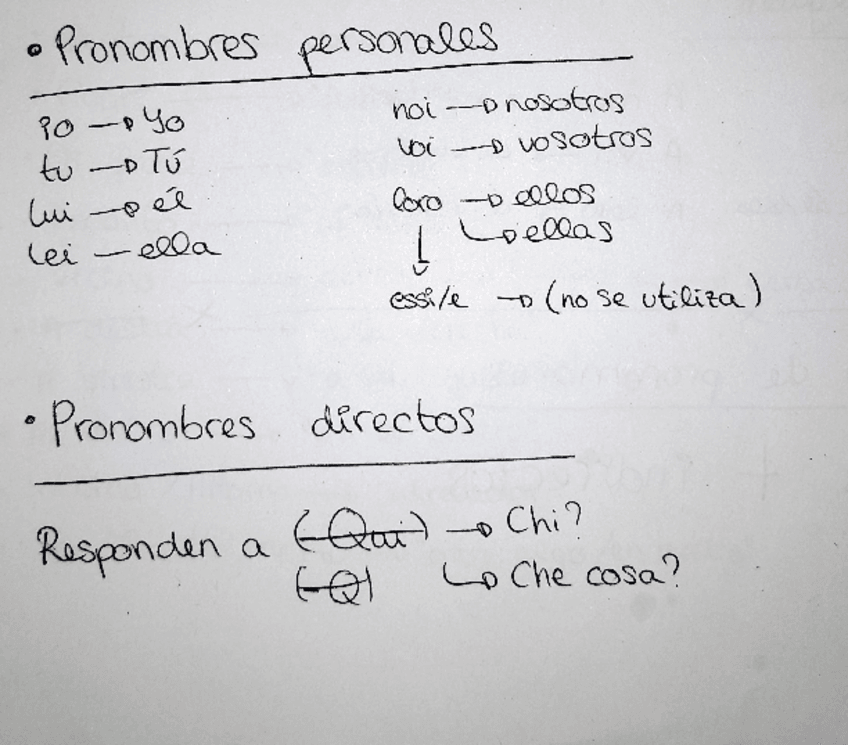 • Pronombres personales
io → Yo
tu → Tú
lui → él
lei — ella
noi → nosotros
voi → vosotros
loro → ellos
↳ ellas
↓
essi/e → (no se utiliza)
• Pronombres directos
Responden a (Qui) → Chi?
(Q) ↳ Che cosa?